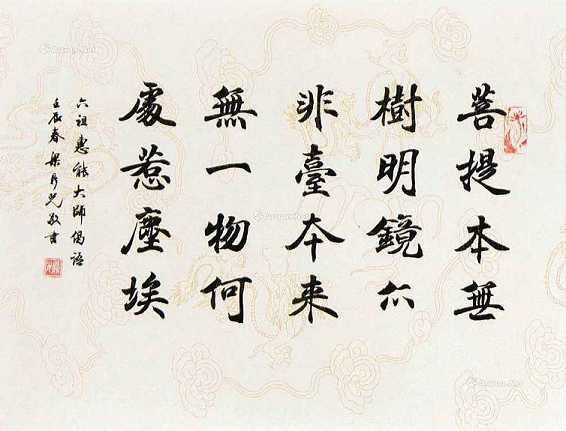 菩提本無
樹明鏡亦
非臺夲来
無一物何
處惹塵埃
六祖惠能大師偈語
壬辰春梁敬書